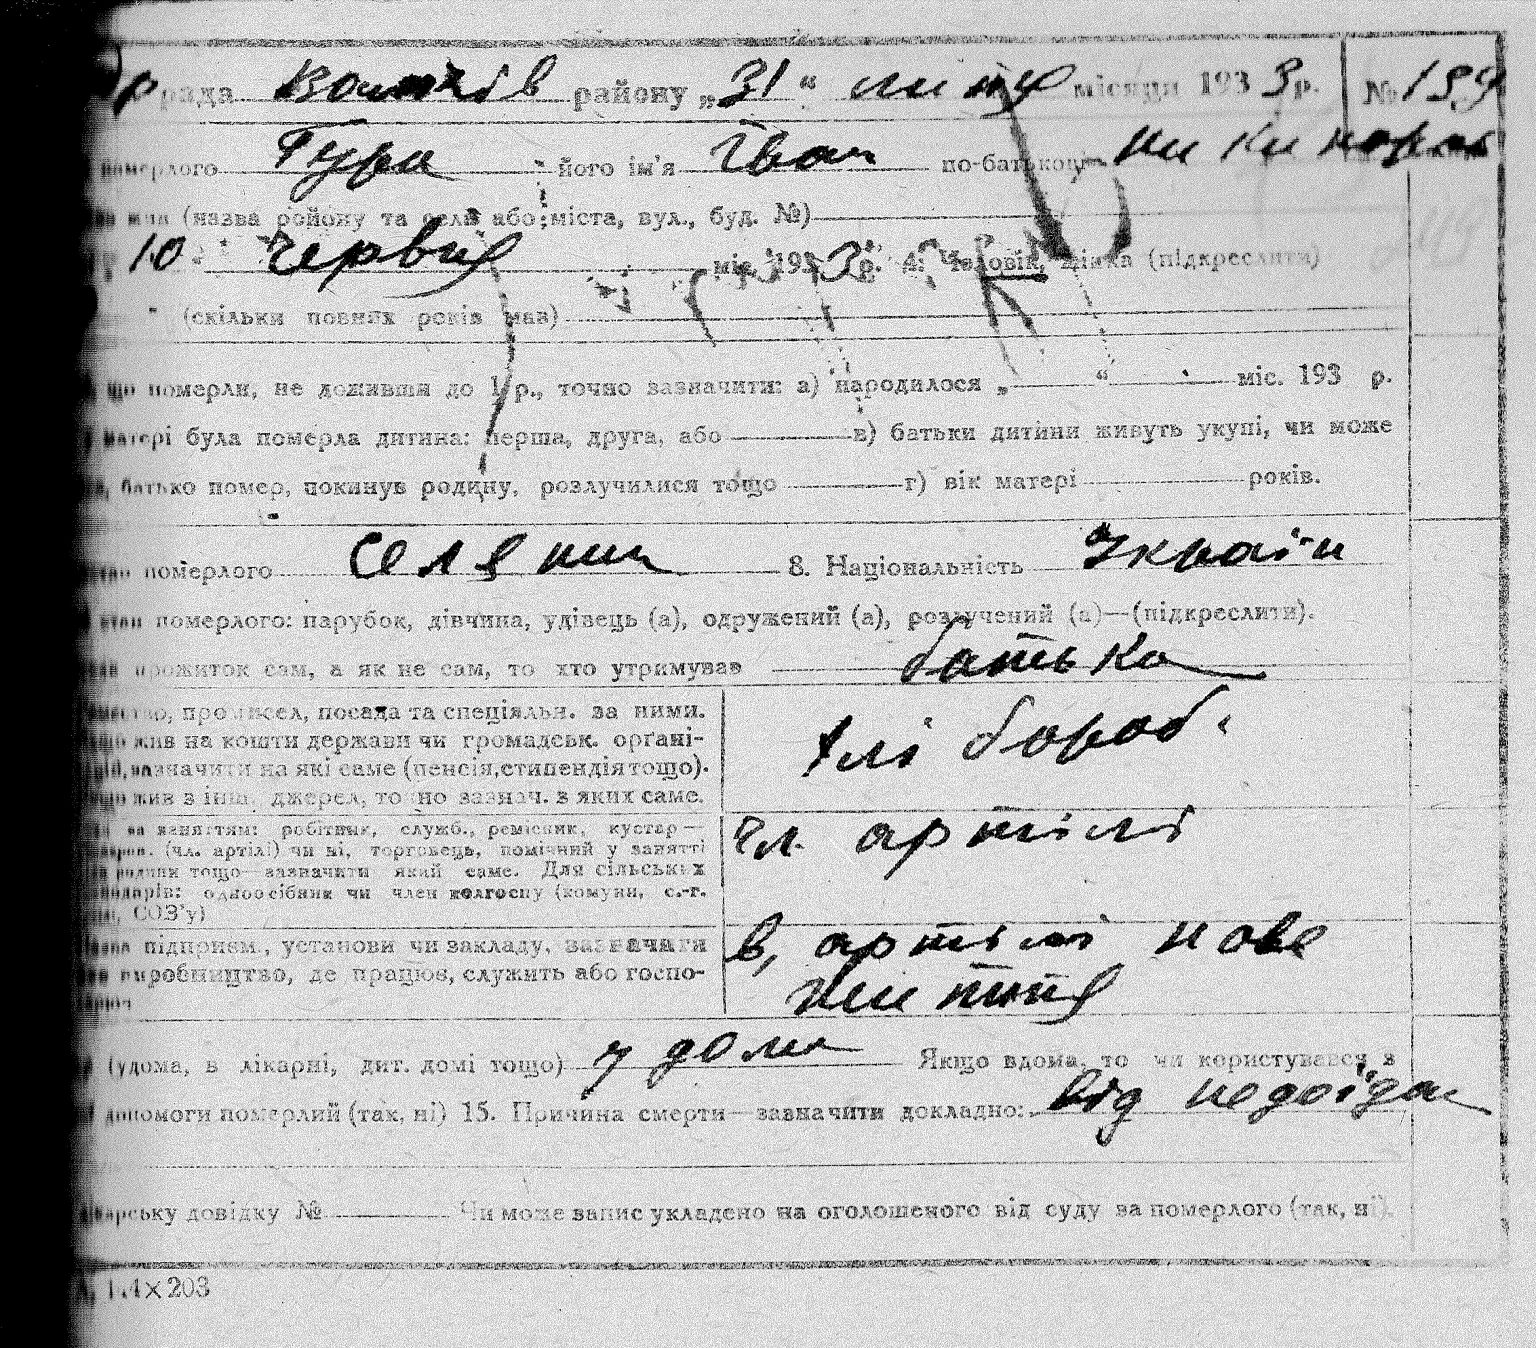 рада Волчків району „31“ липня місяця 1933 р. № 159
померлого Гура його ім'я Іван по-батькові Никифоров
(назва району та села або міста, вул., буд. №)
10 червня міс. 1933 р. 4. Чоловік, жінка (підкреслити)
(скільки повних років мав)
що померли, не доживши до 1 р., точно зазначити: а) народилося „ “ міс. 193 р.
матері була померла дитина: перша, друга, або в) батьки дитини живуть укупі, чи може
батько помер, покинув родину, розлучилися тощо г) вік матері років.
померлого селянин 8. Національність Україн
стан померлого: парубок, дівчина, удівець (а), одружений (а), розлучений (а)—(підкреслити).
прожиток сам, а як не сам, то хто утримував батько
промисел, посада та спеціяльн. за ними.
жив на кошти держави чи громадськ. органі-
зазначити на які саме (пенсія, стипендія тощо).
жив з інш. джерел, точно зазнач. з яких саме.
хлібороб.
за заняттям: робітник, служб., ремісник, кустар—
(чл. артілі) чи ні, торговець, помічний у занятті
родини тощо—зазначити який саме. Для сільських
одноосібник чи член колгоспу (комуни, с.-г.
СОЗ'у)
чл. артілі
підприєм., установи чи закладу, зазначити
виробництво, де працює, служить або госпо-
в, артілі нове
життя
(удома, в лікарні, дит. домі тощо) у дома Якщо вдома, то чи користувався з
допомоги померлий (так, ні) 15. Причина смерти—зазначити докладно: від недоїдан
довідку № Чи може запис укладено на оголошеного від суду за померлого (так, ні).
203